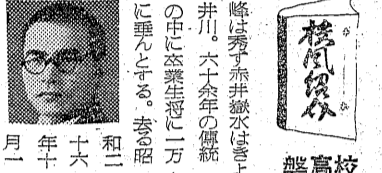 校風紹介
校
磐高
峰は秀す赤井嶽水はきよ
井川。六十余年の傳統
の中に卒業生将に一万
に垂んとする。去る昭
和二
十六
年十
月一